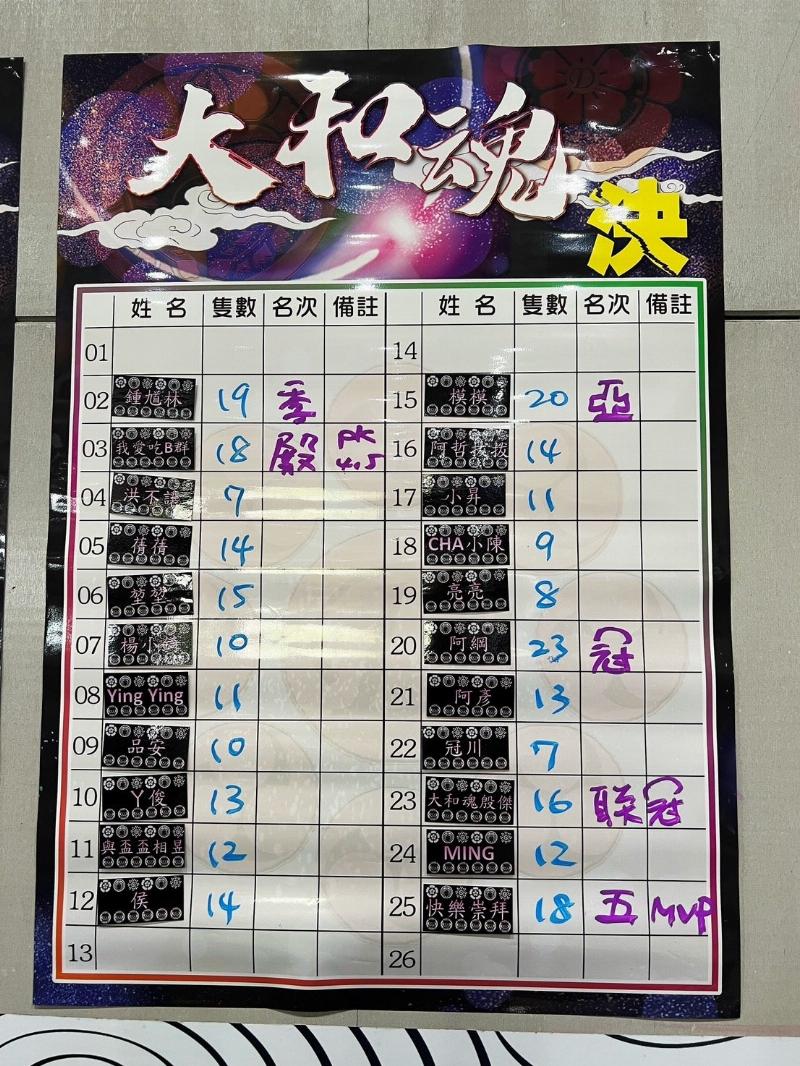 大和魂
決
姓名 隻數 名次 備註
01
02 鍾馗林 19 季
03 我愛吃B群 18 殿 PK 4.5
04 洪不讓 7
05 蒨蒨 14
06 堃堃 15
07 楊小 10
08 Ying Ying 11
09 品安 10
10 丫俊 13
11 與盃盃相昱 12
12 侯 14
13
姓名 隻數 名次 備註
14
15 模模 20 亞
16 阿哲拔拔 14
17 小昇 11
18 CHA小陳 9
19 亮亮 8
20 阿綱 23 冠
21 阿彥 13
22 冠川 7
23 大和魂殷傑 16 联冠
24 MING 12
25 快樂崇拜 18 五 MVP
26